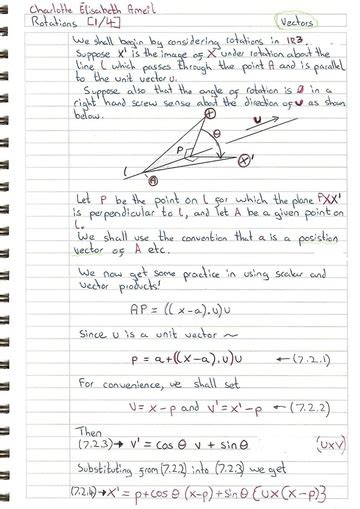 Charlotte Elisabeth Ameil
Rotations [1/4] Vectors
We shall begin by considering rotations in IR3.
Suppose X' is the image of X under rotation about the
line l which passes through the point A and is parallel
to the unit vector u.
Suppose also that the angle of rotation is θ in a
right hand screw sense about the direction of u as shown
below.
X
u
θ
P
X'
l
A
Let P be the point on l for which the plane PXX'
is perpendicular to l, and let A be a given point on
l.
We shall use the convention that a is a position
vector of A etc.
We now get some practice in using scalar and
vector products!
AP = ((x-a).u)u
Since u is a unit vector ~
p = a+((x-a).u)u ← (7.2.1)
For convenience, we shall set
v = x-p and v' = x'-p ← (7.2.2)
Then
(7.2.3) → v' = cos θ v + sin θ (u×v)
Substituting from (7.2.2) into (7.2.3) we get
(7.2.4) → x' = p+cos θ (x-p)+sin θ {u×(x-p)}